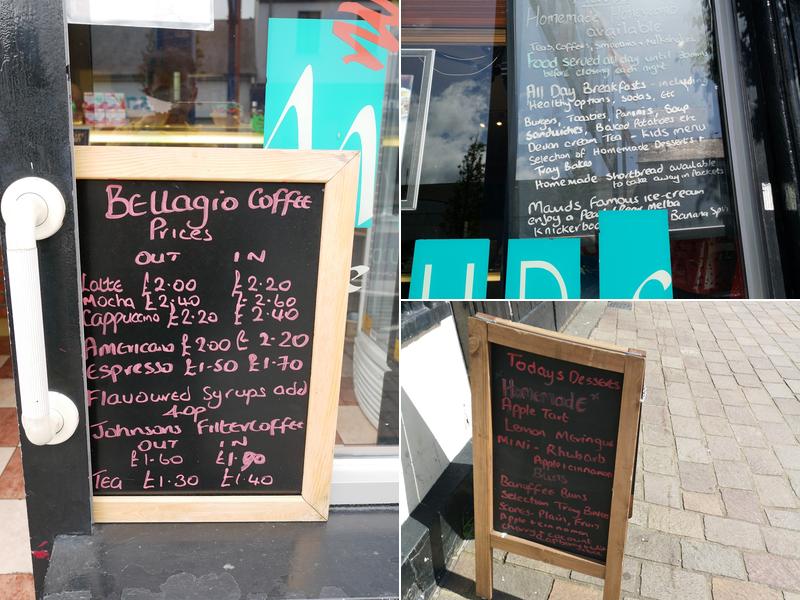 Bellagio Coffee
Prices
OUT IN
Latte £2.00 £2.20
Mocha £2.40 £2.60
Cappuccino £2.20 £2.40
Americano £2.00 £2.20
Espresso £1.50 £1.70
Flavoured Syrups add
40p
Johnsons Filter Coffee
OUT IN
£1.60 £1.90
Tea £1.30 £1.40
Homemade
available
Teas, Coffees, Smoothies & Milkshakes
Food served all day until
before closing each night
All Day Breakfasts - including
Healthy options, sodas, etc
Burgers, Toasties, Paninis, Soup
Sandwiches, Baked Potatoes etc
Devon cream Tea - Kids menu
Selection of Homemade Desserts &
Tray Bakes
Homemade Shortbread available
to take away in Packets
Mauds Famous ice-cream
enjoy a Melba Banana Split
U D S
Todays Desserts
Homemade
Apple Tart
Lemon Meringue
Mini - Rhubarb
Apple & cinnamon
Buns
Banoffee Buns
Selection Tray Bakes
Scones - Plain, Fruit
Apple & cinnamon
cherry & coconut